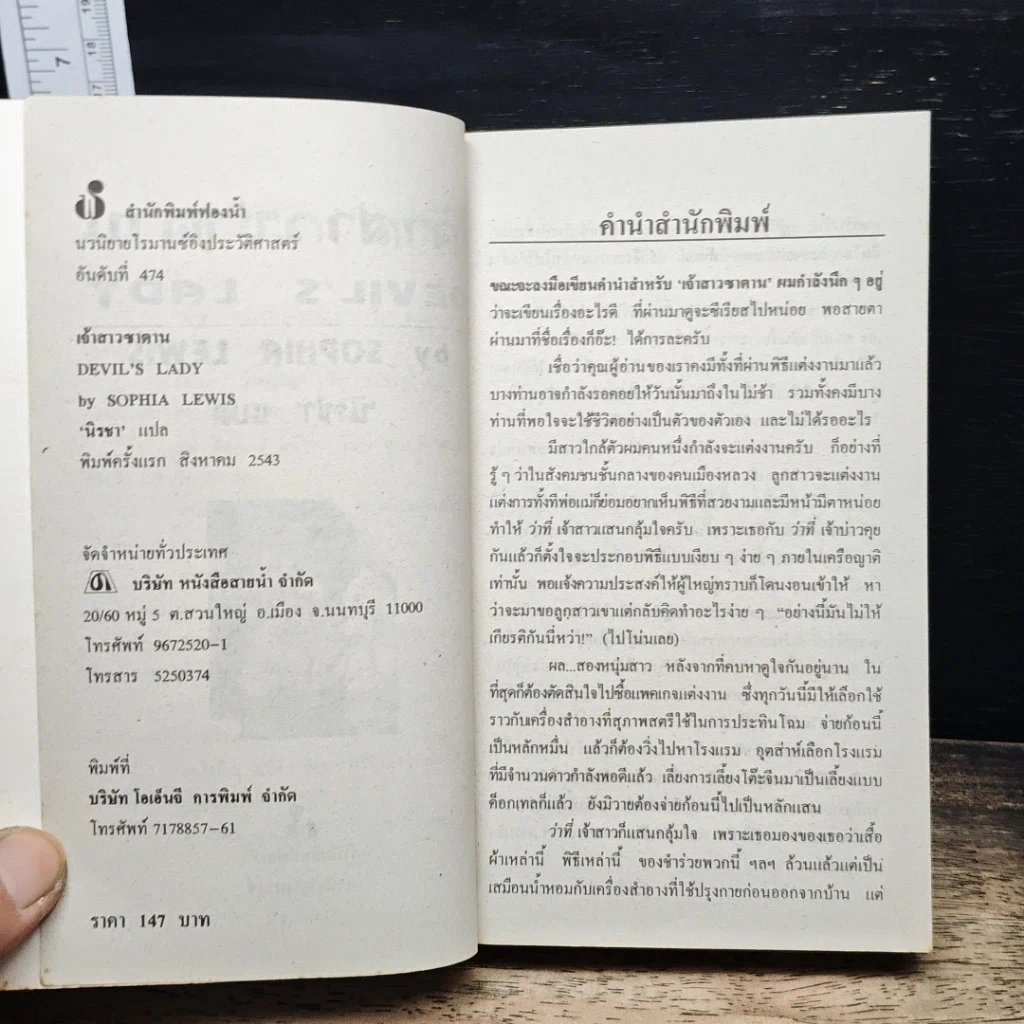 7
19
18
17
สำนักพิมพ์ฟองน้ำ
นวนิยายโรมานซ์อิงประวัติศาสตร์
อันดับที่ 474
เจ้าสาวซาตาน
DEVIL'S LADY
by SOPHIA LEWIS
‘นิรชา’ แปล
พิมพ์ครั้งแรก สิงหาคม 2543
จัดจำหน่ายทั่วประเทศ
บริษัท หนังสือสายน้ำ จำกัด
20/60 หมู่ 5 ต.สวนใหญ่ อ.เมือง จ.นนทบุรี 11000
โทรศัพท์ 9672520-1
โทรสาร 5250374
พิมพ์ที่
บริษัท โอเอ็นจี การพิมพ์ จำกัด
โทรศัพท์ 7178857-61
ราคา 147 บาท
คำนำสำนักพิมพ์
ขณะจะลงมือเขียนคำนำสำหรับ ‘เจ้าสาวซาตาน’ ผมกำลังนึก ๆ อยู่
ว่าจะเขียนเรื่องอะไรดี ที่ผ่านมาดูจะซีเรียสไปหน่อย พอสายตา
ผ่านมาที่ชื่อเรื่องก็อ๊ะ! ได้การละครับ
เชื่อว่าคุณผู้อ่านของเราคงมีทั้งที่ผ่านพิธีแต่งงานมาแล้ว
บางท่านอาจกำลังรอคอยให้วันนั้นมาถึงในไม่ช้า รวมทั้งคงมีบาง
ท่านที่พอใจจะใช้ชีวิตอย่างเป็นตัวของตัวเอง และไม่ได้รออะไร
มีสาวใกล้ตัวผมคนหนึ่งกำลังจะแต่งงานครับ ก็อย่างที่
รู้ ๆ ว่าในสังคมชนชั้นกลางของคนเมืองหลวง ลูกสาวจะแต่งงาน
แต่งการทั้งทีพ่อแม่ก็ย่อมอยากเห็นพิธีที่สวยงามและมีหน้ามีตาหน่อย
ทำให้ ว่าที่ เจ้าสาวแสนกลุ้มใจครับ เพราะเธอกับ ว่าที่ เจ้าบ่าวคุย
กันแล้วก็ตั้งใจจะประกอบพิธีแบบเงียบ ๆ ง่าย ๆ ภายในเครือญาติ
เท่านั้น พอแจ้งความประสงค์ให้ผู้ใหญ่ทราบก็โดนงอนเข้าให้ หา
ว่าจะมาขอลูกสาวเขาแต่กลับคิดทำอะไรง่าย ๆ “อย่างนี้มันไม่ให้
เกียรติกันนี่หว่า!” (ไปโน่นเลย)
ผล...สองหนุ่มสาว หลังจากที่คบหาดูใจกันอยู่นาน ใน
ที่สุดก็ต้องตัดสินใจไปซื้อแพคเกจแต่งงาน ซึ่งทุกวันนี้มีให้เลือกใช้
ราวกับเครื่องสำอางที่สุภาพสตรีใช้ในการประทินโฉม จ่ายก่อนนี้
เป็นหลักหมื่น แล้วก็ต้องวิ่งไปหาโรงแรม อุตส่าห์เลือกโรงแรม
ที่มีจำนวนดาวกำลังพอดีแล้ว เลี่ยงการเลี้ยงโต๊ะจีนมาเป็นเลี้ยงแบบ
ค็อกเทลก็แล้ว ยังมิวายต้องจ่ายก้อนนี้ไปเป็นหลักแสน
ว่าที่ เจ้าสาวก็แสนกลุ้มใจ เพราะเธอมองของเธอว่าเสื้อ
ผ้าเหล่านี้ พิธีเหล่านี้ ของชำร่วยพวกนี้ ฯลฯ ล้วนแล้วแต่เป็น
เสมือนน้ำหอมกับเครื่องสำอางที่ใช้ปรุงกายก่อนออกจากบ้าน แต่